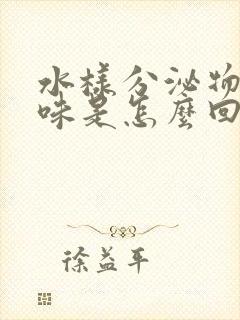 水樣分泌物
味是怎麼回
徐益平